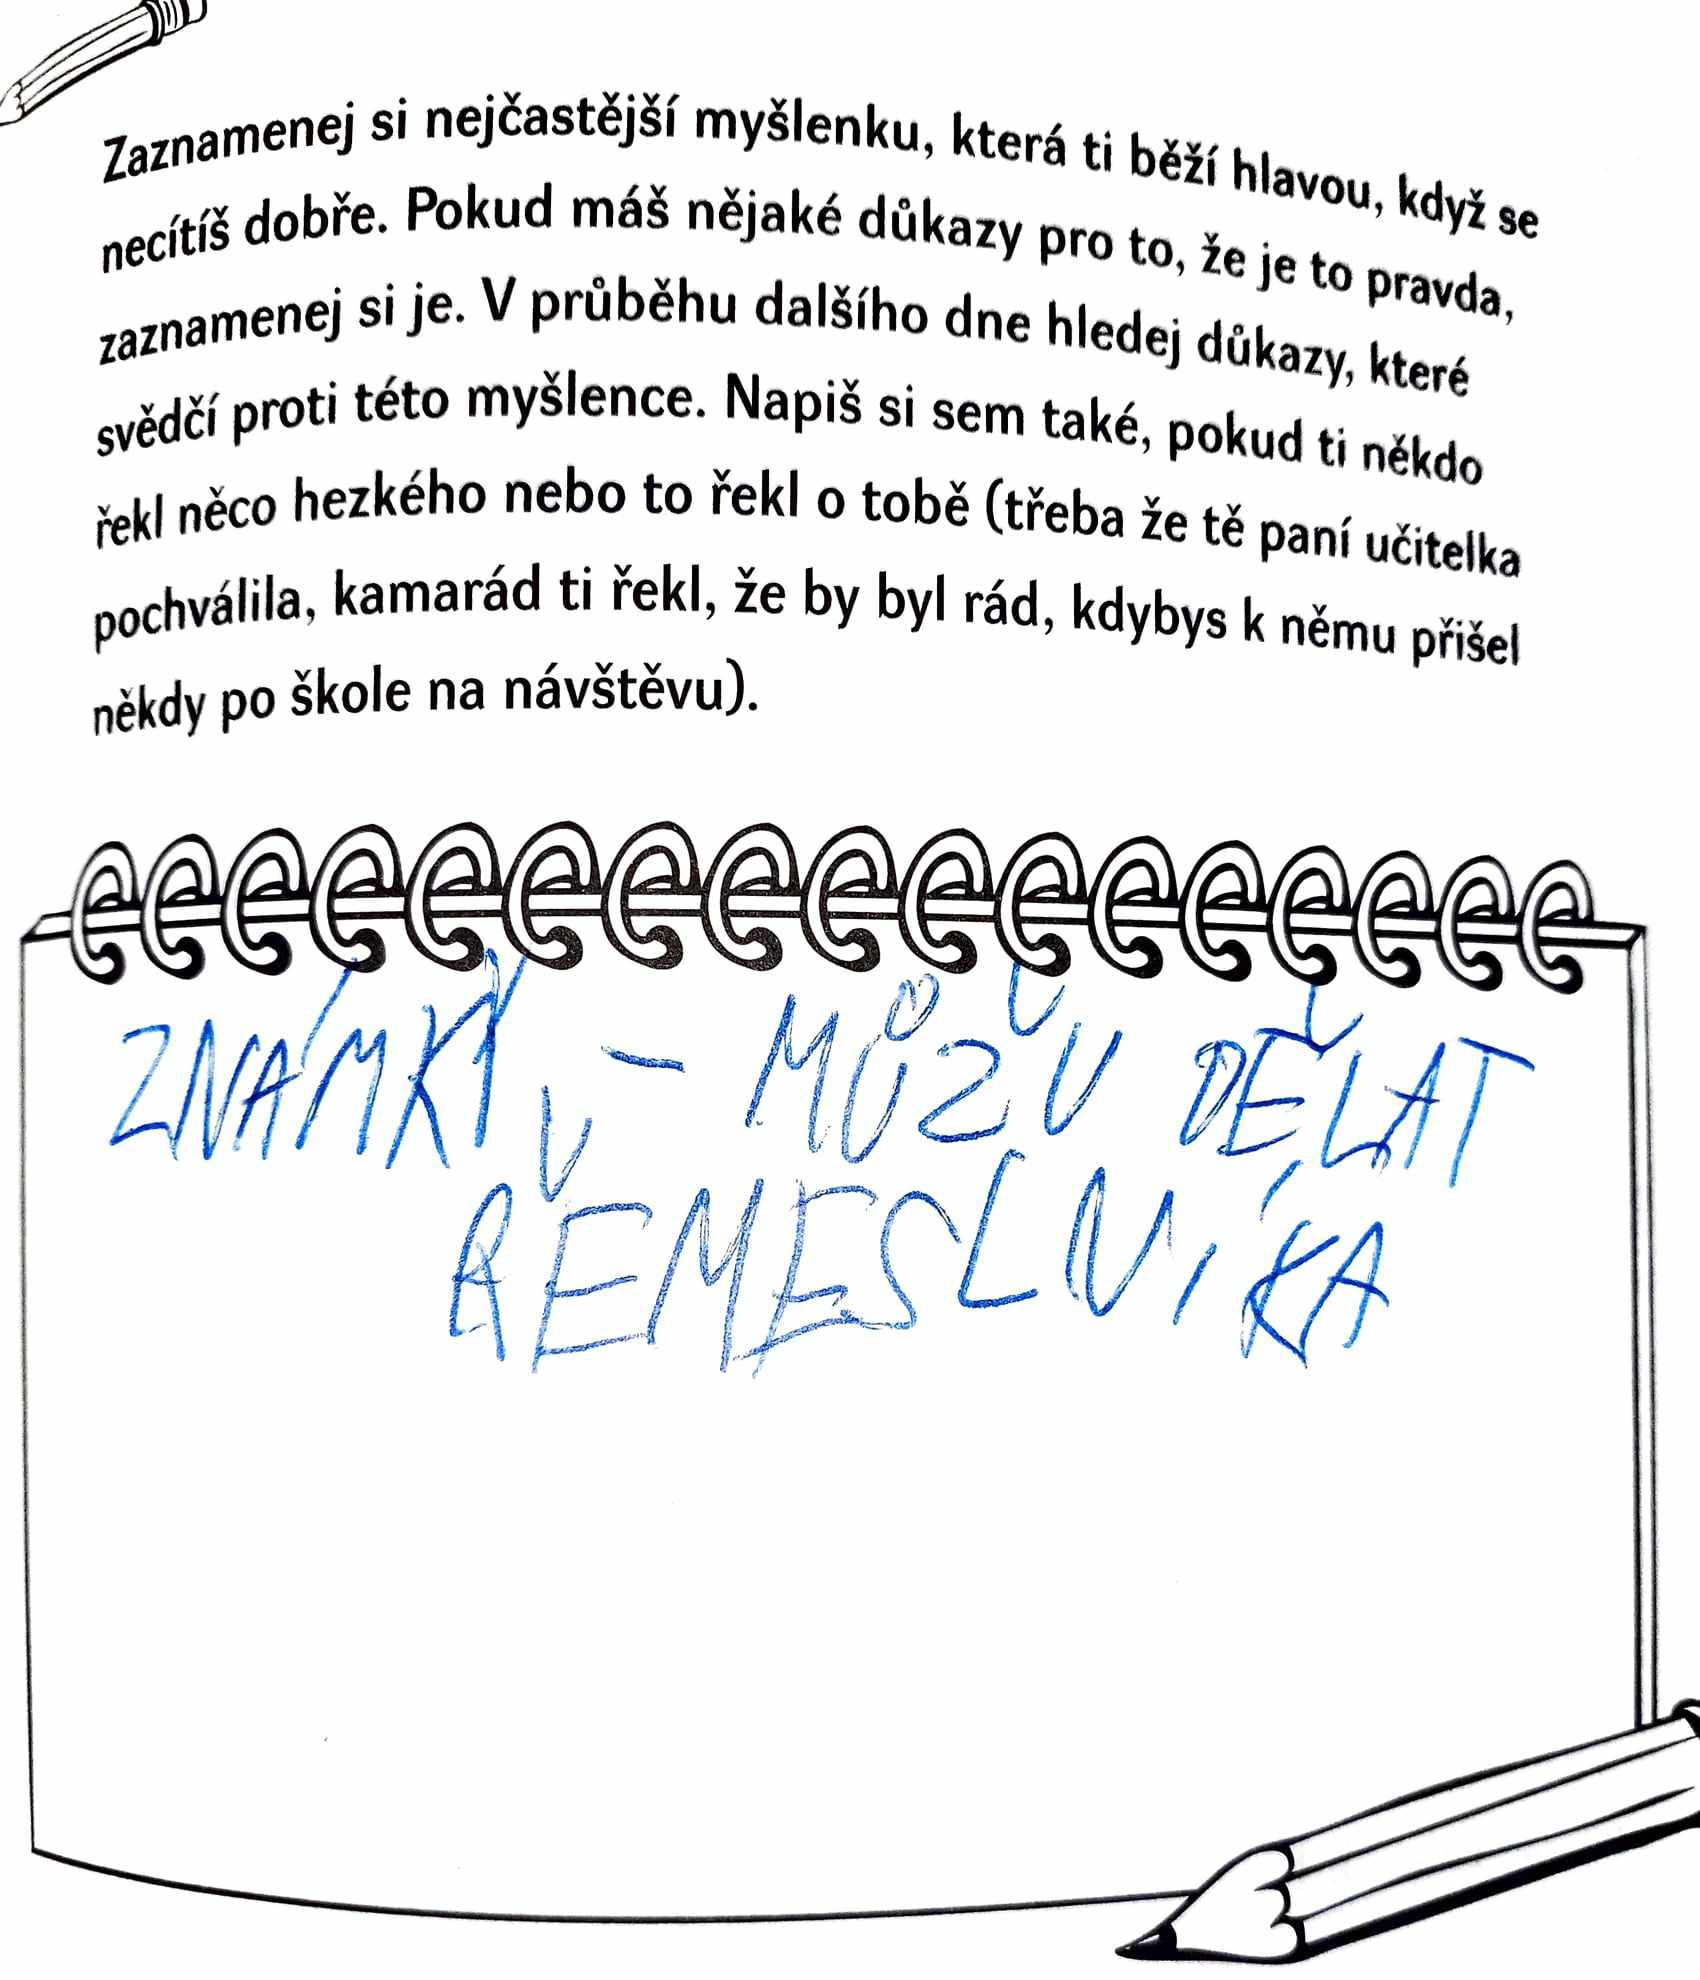 Zaznamenej si nejčastější myšlenku, která ti běží hlavou, když se
necítíš dobře. Pokud máš nějaké důkazy pro to, že je to pravda,
zaznamenej si je. V průběhu dalšího dne hledej důkazy, které
svědčí proti této myšlence. Napiš si sem také, pokud ti někdo
řekl něco hezkého nebo to řekl o tobě (třeba že tě paní učitelka
pochválila, kamarád ti řekl, že by byl rád, kdybys k němu přišel
někdy po škole na návštěvu).
ZNÁMKY - MŮŽU DĚLAT
ŘEMESLNÍKA